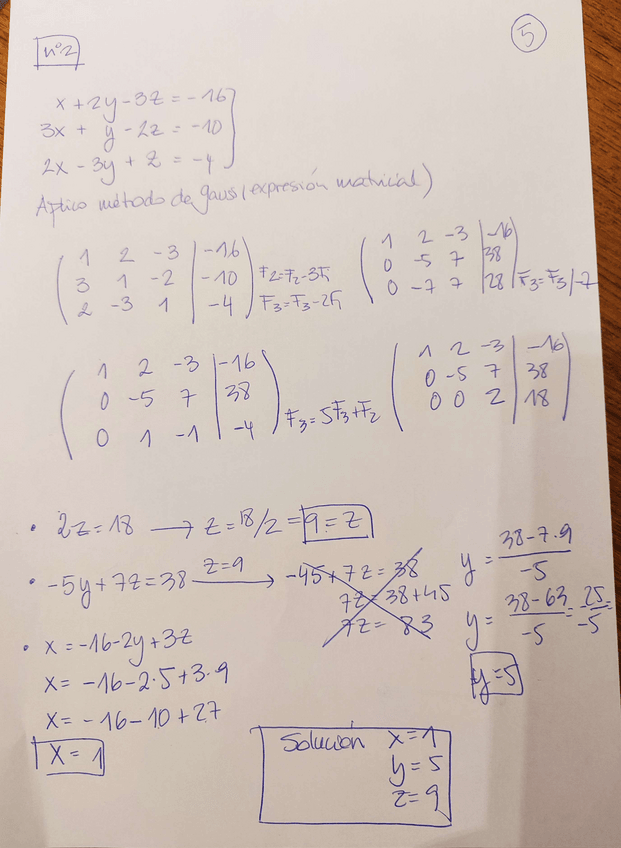 5
nº2
x + 2y - 3z = -16
3x + y - 2z = -10
2x - 3y + z = -4
Aplico método de gauss (expresión matricial)
1 2 -3 | -16
3 1 -2 | -10 F2=F2-3F1
2 -3 1 | -4 F3=F3-2F1
1 2 -3 | -16
0 -5 7 | 38
0 -7 7 | 28 F3=F3/-7
1 2 -3 | -16
0 -5 7 | 38
0 1 -1 | -4 F3=5F3+F2
1 2 -3 | -16
0 -5 7 | 38
0 0 2 | 18
• 2z=18 → z=18/2=9=z
• -5y+7z=38 z=9 →
-45+7z=38
7z=38+45
7z=83
y = 38-7·9 / -5
y = 38-63 / -5 = 25 / -5 =
y=5
• x=-16-2y+3z
x= -16-2·5+3·9
x= -16-10+27
x= 1
Solución x=1
y=5
z=9